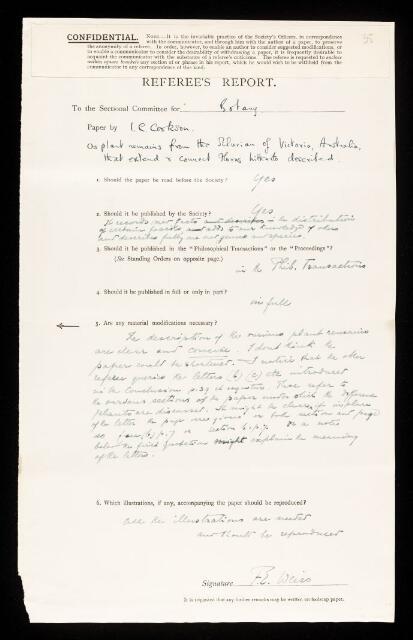 35
CONFIDENTIAL.
NOTE.—It is the invariable practice of the Society's Officers, in correspondence
with the communicator, and through him with the author of a paper, to preserve
the anonymity of a referee. In order, however, to enable an author to consider suggested modifications, or
to enable a communicator to consider the desirability of withdrawing a paper, it is frequently desirable to
acquaint the communicator with the substance of a referee's criticisms. The referee is requested to enclose
within square brackets any section of or phrase in his report, which he would wish to be withheld from the
communicator in any correspondence of this kind.
REFEREE'S REPORT.
To the Sectional Committee for Botany
Paper by I. C. Cookson.
On plant remains from the Silurian of Victoria, Australia,
that extend & connect floras hitherto described.
1. Should the paper be read before the Society? Yes
2. Should it be published by the Society? Yes
It records new facts in the distribution
of certain fossils and adds to our knowledge of others
and describes fully new genus and species.
3. Should it be published in the "Philosophical Transactions" or the "Proceedings"?
(See Standing Orders on opposite page.)
in the Phil. Transactions
4. Should it be published in full or only in part?
in full
5. Are any material modifications necessary?
The description of the various plant remains
are clear and concise. I dont think the
paper could be shortened. I notice that the other
referee queries the letters (b) (c) etc introduced
in the conclusions p. 39 et sequitur. These refer to
the various sections of the paper under which the different
plants are discussed. It might be clearer if in place
of the letter the page were given or both section and page
so p. 7 or section b. p. 7. Or a note
below the first might explain the meaning
of the letters.
6. Which illustrations, if any, accompanying the paper should be reproduced?
all the illustrations are needed
and should be reproduced
Signature F. E. Weiss
It is requested that any further remarks may be written on foolscap paper.